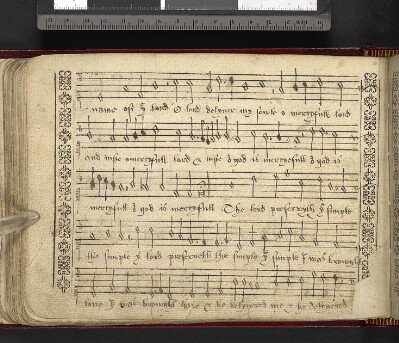 name of yͤ lord O lord delyuer my soule o mercyfull lord
and iuste omercyfull lord & iuste & god is mercyfull & god is
mercyfull & god is mercyfull The lord preseruyth yͤ simple
the simple yͤ lord preseruyth the simple yͤ simple I was brought
I was brought lowe & he delyuered me & he delyuered